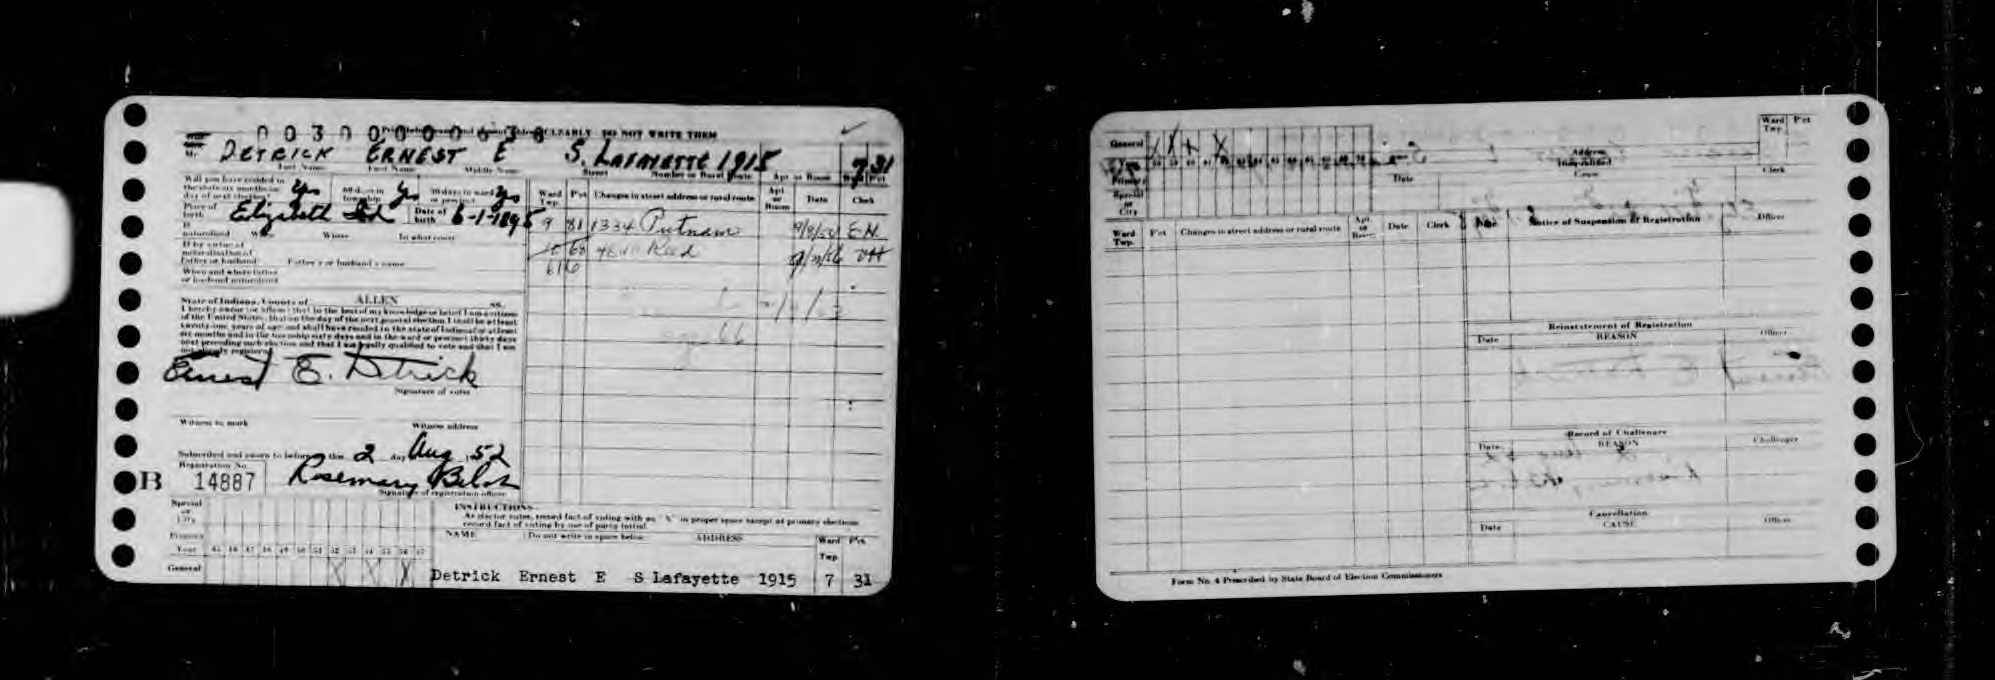 CLEARLY DO NOT WRITE THEM
Mr. DETRICK ERNEST E S. LAFAYETTE 1915 7 31
Last Name First Name Middle Name Street Number or Rural Route Apt or Room Ward Pct
Will you have resided in the state six months on day of next election? Yes 60 days in township Yes 30 days in ward or precinct Yes
Ward Twp. Pct Changes in street address or rural route Apt or Room Date Clerk
Place of birth Elizabeth Ind Date of birth 6-1-1895
9 81 1334 Putnam E.H.
If naturalized When Where In what court
Reed
If by virtue of naturalization of Father or husband Father's or husband's name
6 16
When and where father or husband naturalized
State of Indiana, County of ALLEN ss.
I hereby swear (or affirm) that to the best of my knowledge or belief I am a citizen
of the United States; that on the day of the next general election I shall be at least
twenty-one years of age and shall have resided in the state of Indiana for at least
six months and in the township sixty days and in the ward or precinct thirty days
next preceding such election and that I am legally qualified to vote and that I am
not already registered.
Ernest E. Detrick
Signature of voter
Witness to mark Witness address
Subscribed and sworn to before me this 2 day Aug 52
Registration No.
B 14887 Rosemary
Signature of registration officer
Special or City
Primary
Year 45 46 47 48 49 50 51 52 53 54 55 56 57
General X X X
INSTRUCTIONS
As elector votes, record fact of voting with an "X" in proper space except at primary elections
record fact of voting by use of party initial.
NAME Do not write in space below ADDRESS Ward Twp. Pct.
Detrick Ernest E S Lafayette 1915 7 31
General X X X
Year
Primary
Special or City
Ward Twp. Pct
Address
Date Cause Clerk
Ward Twp. Pct Changes in street address or rural route Apt or Room Date Clerk
Date Notice of Suspension of Registration Officer
Reinstatement of Registration
Date REASON Officer
Record of Challenges
Date REASON Challenger
Cancellation
Date CAUSE Officer
Form No. 4 Prescribed by State Board of Election Commissioners